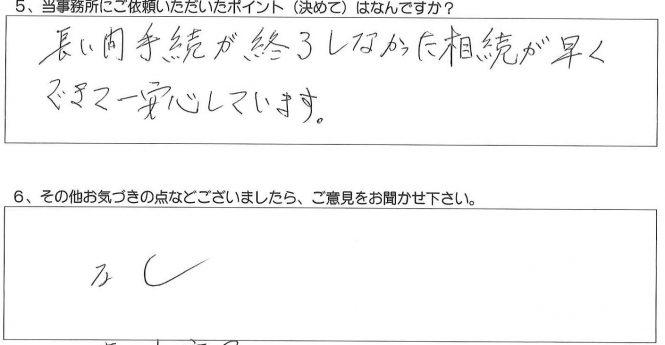 5、当事務所にご依頼いただいたポイント（決めて）はなんですか？
長い間手続が終了しなかった相続が早く
できて一安心しています。
6、その他お気づきの点などございましたら、ご意見をお聞かせ下さい。
なし